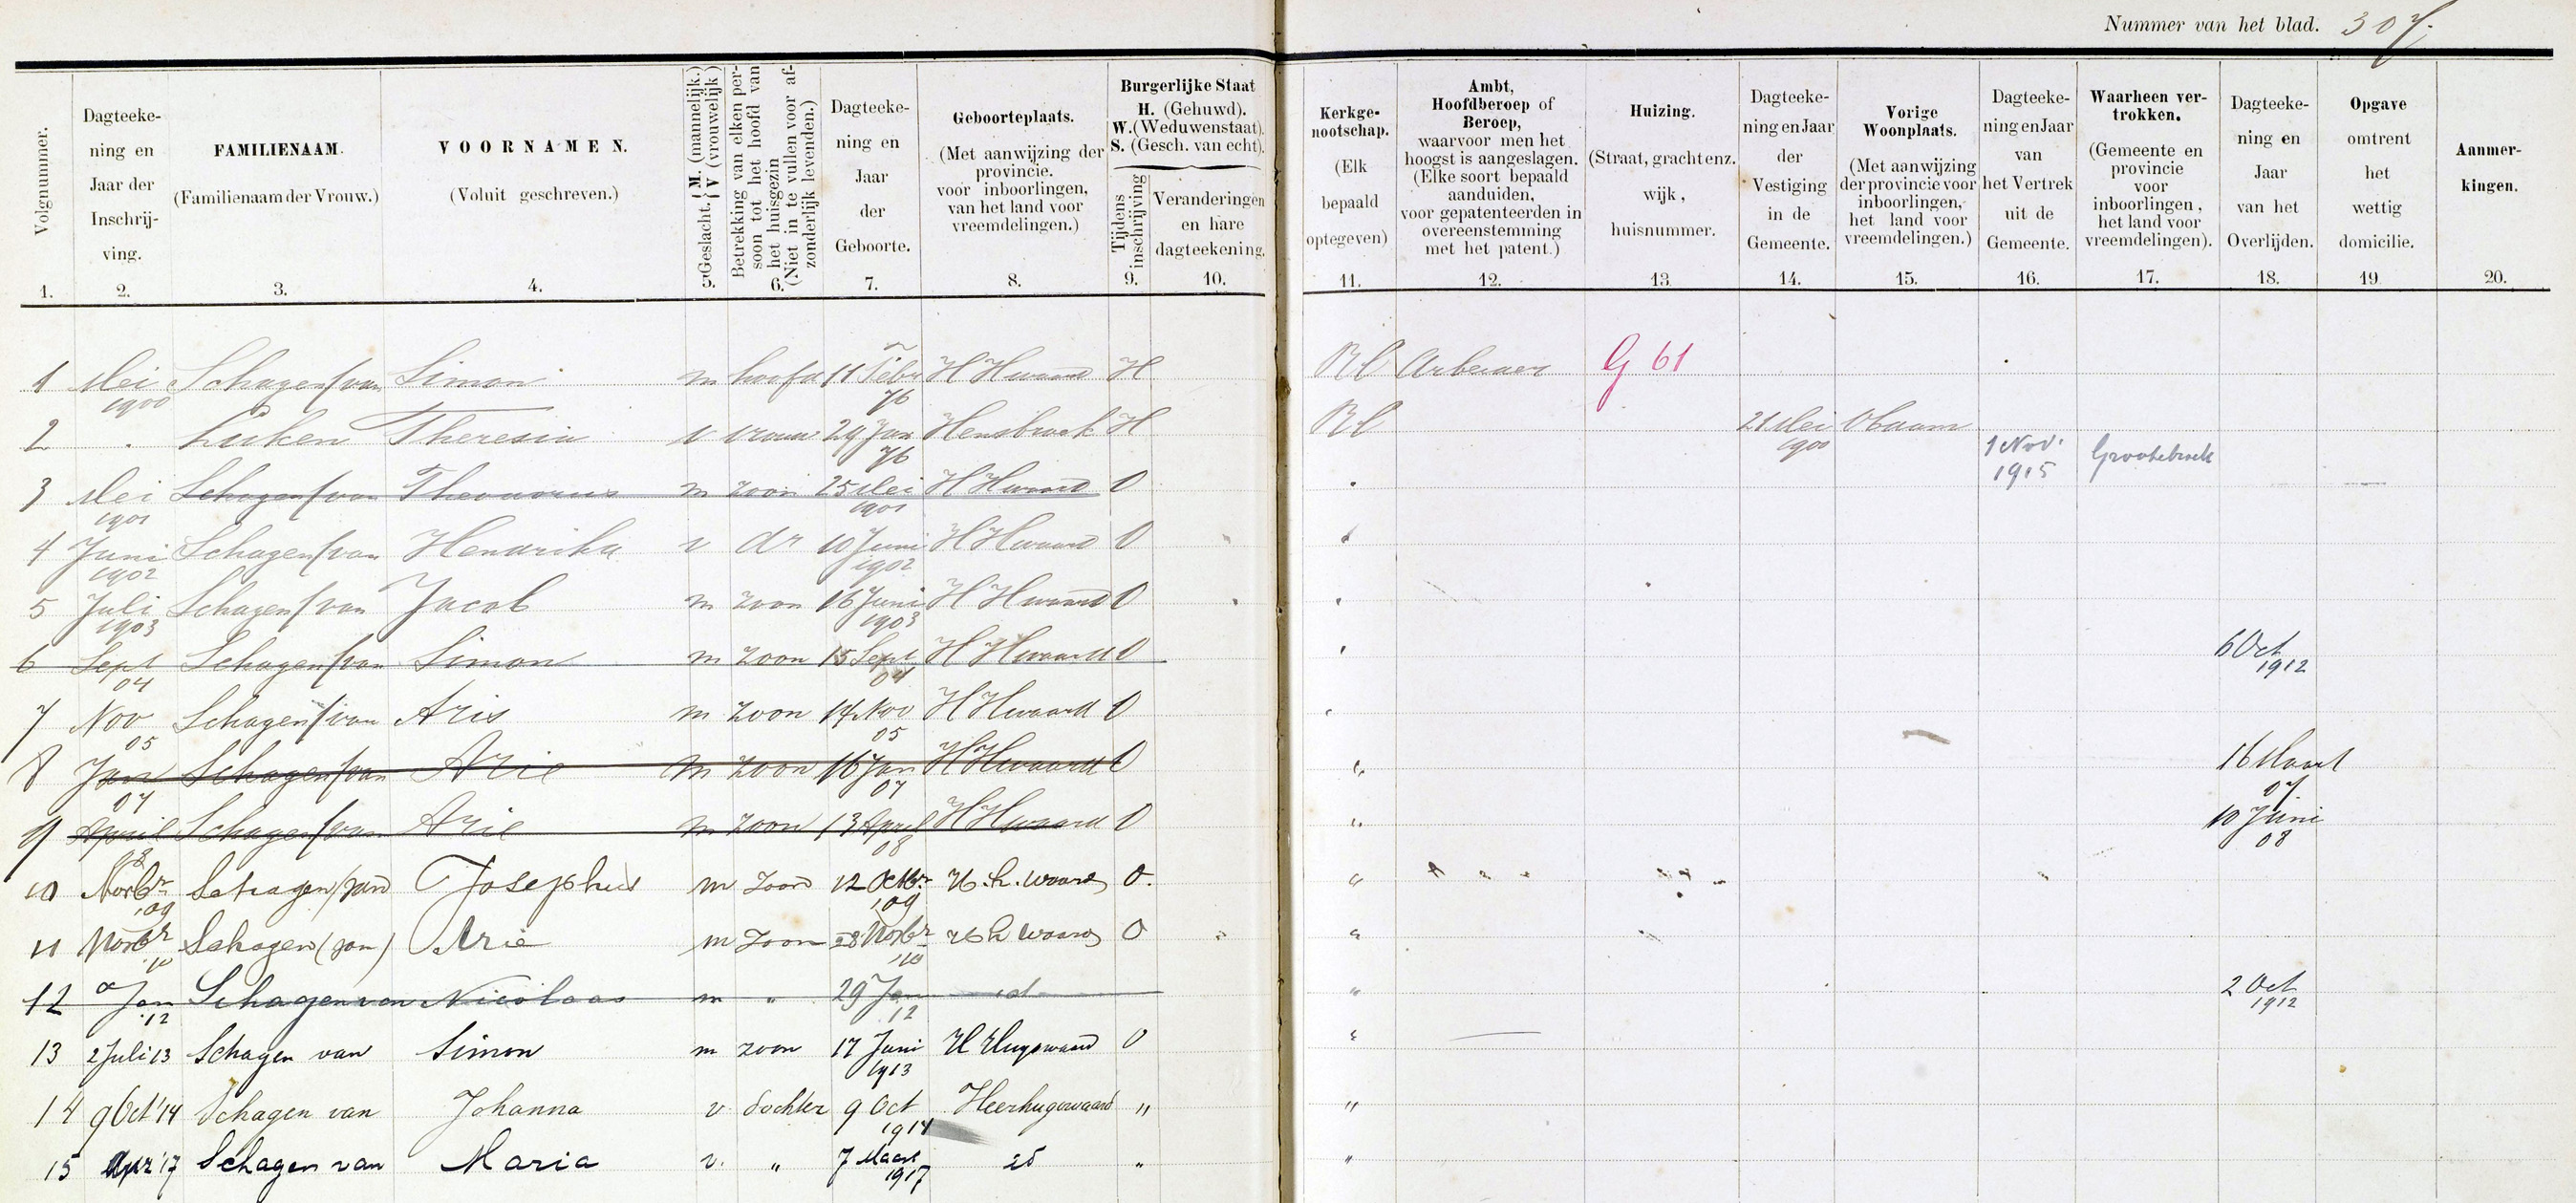 Nummer van het blad. 307.
Volgnummer. 1.
Dagteekening en Jaar der Inschrijving. 2.
FAMILIENAAM. (Familienaam der Vrouw.) 3.
VOORNAMEN. (Voluit geschreven.) 4.
Geslacht. { M. (mannelijk.) { V (vrouwelijk) 5.
Betrekking van elken persoon tot het hoofd van het huisgezin (Niet in te vullen voor afzonderlijk levenden.) 6.
Dagteekening en Jaar der Geboorte. 7.
Geboorteplaats. (Met aanwijzing der provincie. voor inboorlingen, van het land voor vreemdelingen.) 8.
Burgerlijke Staat H. (Gehuwd). W. (Weduwenstaat). S. (Gesch. van echt).
Tijdens inschrijving 9.
Veranderingen en hare dagteekening. 10.
Kerkgenootschap. (Elk bepaald optegeven) 11.
Ambt, Hoofdberoep of Beroep, waarvoor men het hoogst is aangeslagen. (Elke soort bepaald aanduiden, voor gepatenteerden in overeenstemming met het patent.) 12.
Huizing. (Straat, gracht enz. wijk, huisnummer. 13
Dagteekening en Jaar der Vestiging in de Gemeente. 14.
Vorige Woonplaats. (Met aanwijzing der provincie voor inboorlingen, het land voor vreemdelingen.) 15.
Dagteekening en Jaar van het Vertrek uit de Gemeente. 16.
Waarheen vertrokken. (Gemeente en provincie voor inboorlingen, het land voor vreemdelingen). 17.
Dagteekening en Jaar van het Overlijden. 18.
Opgave omtrent het wettig domicilie. 19
Aanmerkingen. 20.
1 Mei 1900 Schagen (van Simon m hoofd 11 Febr 76 HHwaard H RC Arbeider G 61
2 " Luken Theresia v vrouw 29 Jan 76 Hensbroek H RC 21 Mei 1900 Obdam
3 Mei 1901 Schagen (van Theodorus m zoon 25 Mei 1901 HHwaard O " 1 Nov. 1915 Grootebroek
4 Juni 1902 Schagen (van Hendrika v dr 10 Juni 1902 HHwaard O "
5 Juli 1903 Schagen (van Jacob m zoon 16 Juni 1903 HHwaard O "
6 Sept 04 Schagen (van Simon m zoon 15 Sept 04 HHwaard O " 6 Oct 1912
7 Nov 05 Schagen (van Aris m zoon 14 Nov 05 HHwaard O "
8 Jan 07 Schagen (van Arie m zoon 16 Jan 07 HHwaard O " 16 Maart 07
9 April 08 Schagen (van Arie m zoon 13 April 08 HHwaard O " 10 Juni 08
10 Novbr '09 Schagen (van) Josephus m zoon 12 Octbr. '09 H.h.waard O. "
11 Novbr '10 Schagen (van) Arie m zoon 28 Novbr '10 H h waard O "
12 Jan '12 Schagen van Nicolaas m " 29 Jan 12 id " 2 Oct 1912
13 2 Juli 13 Schagen van Simon m zoon 17 Juni 1913 H Hugowaard O "
14 9 Oct '14 Schagen van Johanna v dochter 9 Oct 1914 Heerhugowaard " "
15 Apr '17 Schagen van Maria v. " 7 Maart 1917 id " "